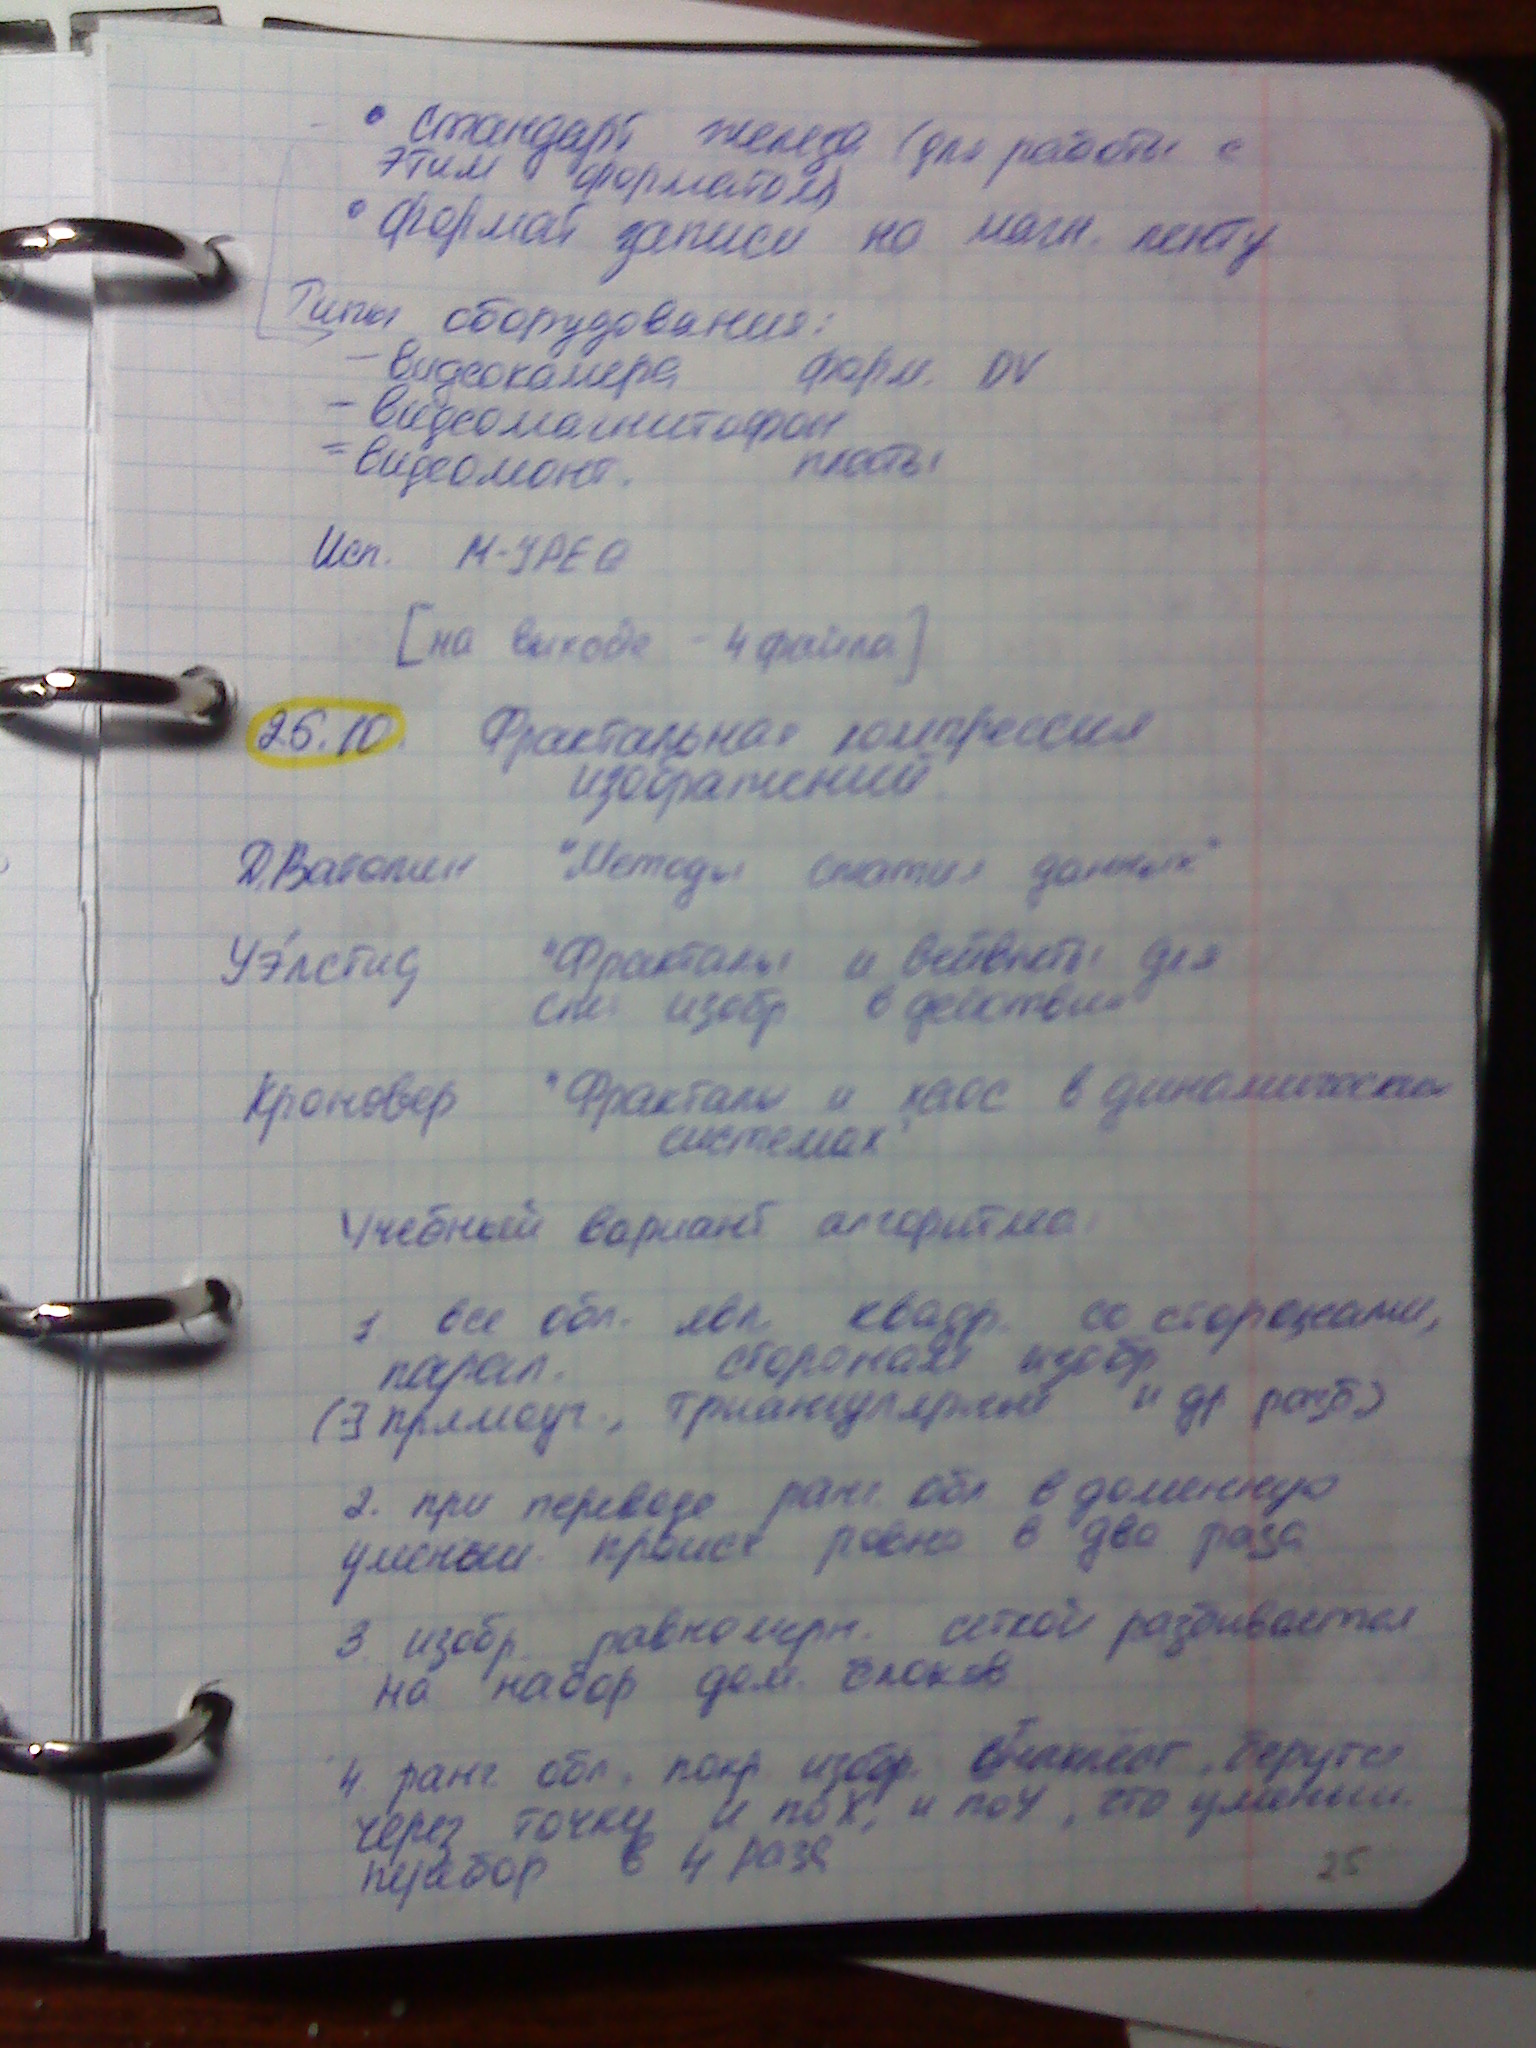 • стандарт железа (для работы с
этим форматом)
• формат записи на магн. ленту
Типы оборудования:
- видеокамера форм. DV
- видеомагнитофон
= видеомонт. платы
Исп. M-JPEG
[на выходе - 4 файла]
26.10. Фрактальная компрессия
изображений
Д.Ватолин "Методы сжатия данных"
Уэ́лстид "Фракталы и вейвлеты для
сж. изобр в действии"
Кроновер "Фракталы и хаос в динамических
системах"
Учебный вариант алгоритма:
1 все обл. явл. квадр. со сторонами,
парал. сторонам изобр
(∃ прямоуг., триангулярные и др разб.)
2. при переводе ранг. обл в доменную
уменьш. происх ровно в два раза
3. изобр. равномерн. сеткой разбивается
на набор дом. блоков
4. ранг. обл. покр. изобр. внахлёст, берутся
через точку и по X, и по Y, что уменьш.
перебор в 4 раза
25